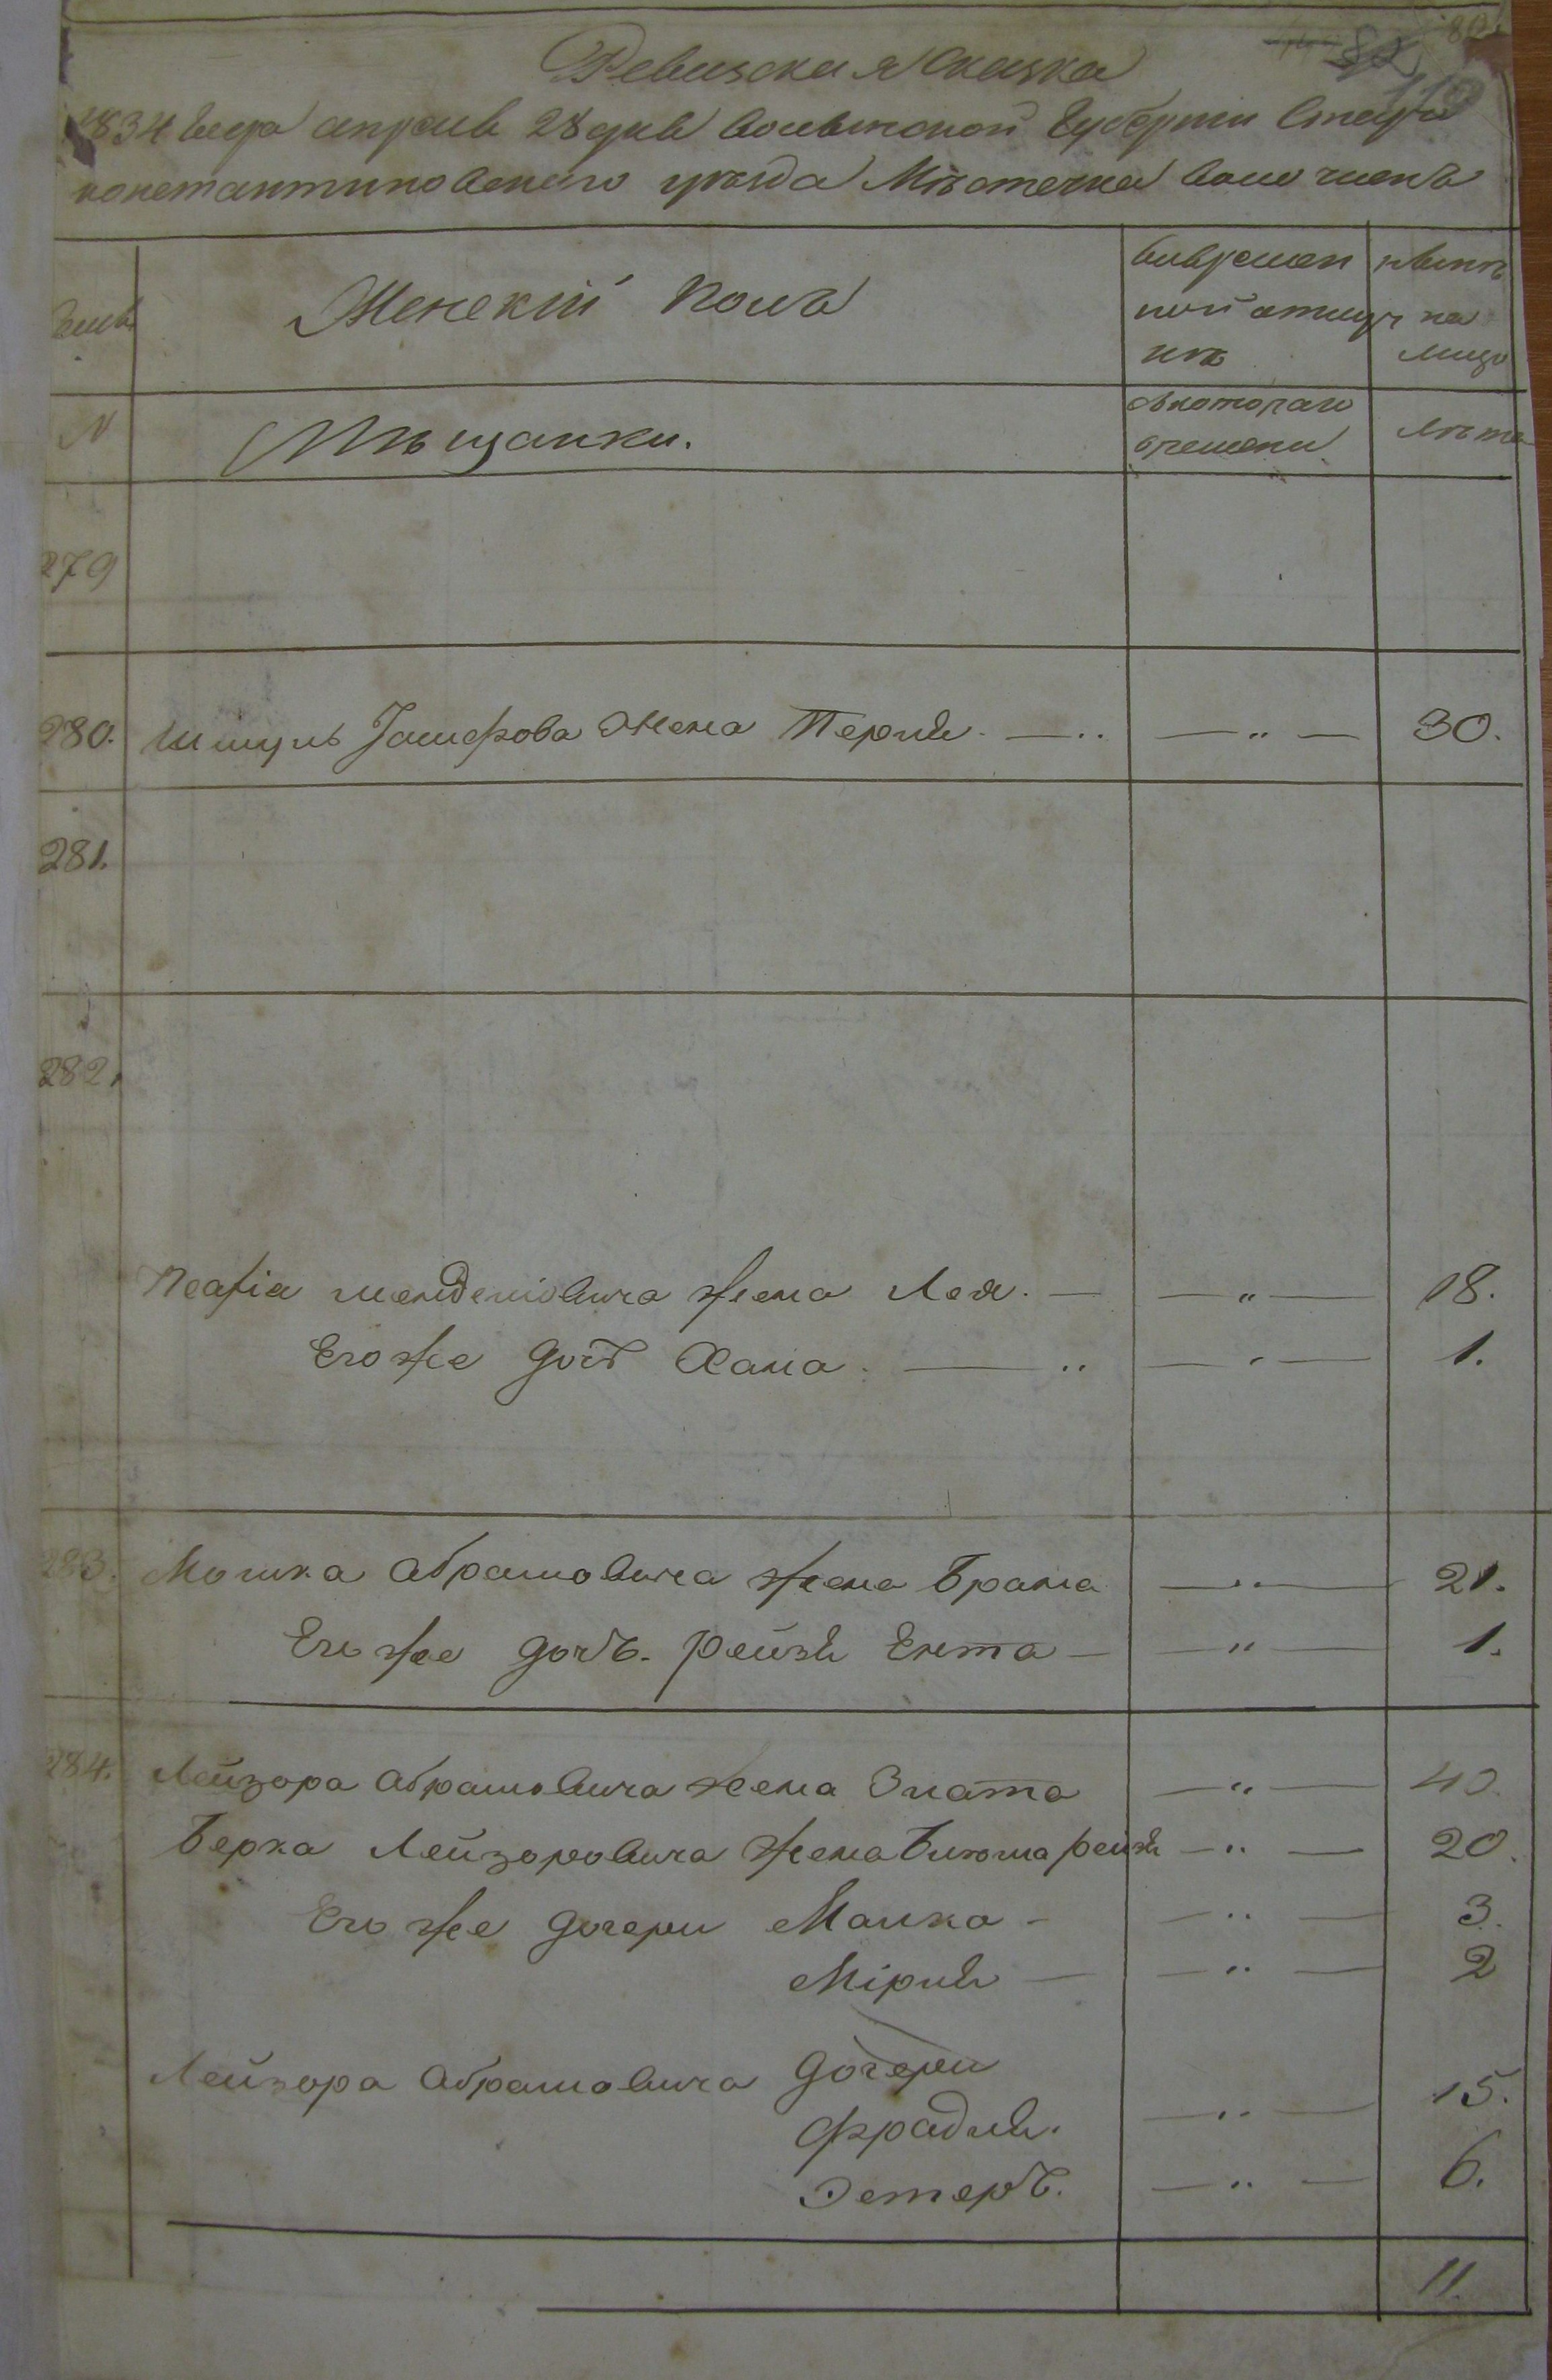 Ревизская Сказка
1834 года апреля 28 дня волынской Губернии Старо
константиновского уезда Местечка волочискъ
Женскій полъ
вовремен ныне
ной отлуч на
ке лицо
N Мѣщанки. скоторого Лета
времени
279
280. Шмуль Іошефова Жена Перля. — .. — „ — 30.
281.
282.
менделіовича жена Лея. — — „ — 18.
Его же дочь Хана. — .. — „ — 1.
283. Мошка Абрамовича жена Брана — „ — 21.
Его же дочь. Рейзя Ента — — „ — 1.
284. Лейзора Абрамовича жена Злата — „ — 40.
Берка Лейзоровича жена Блюма рейзя — „ — 20.
Его же дочери Малка — — „ — 3.
Міріля — — „ — 2
Лейзора Абрамовича дочери
Фрадля. — „ — 15.
Эстеръ. — „ — 6.
11.